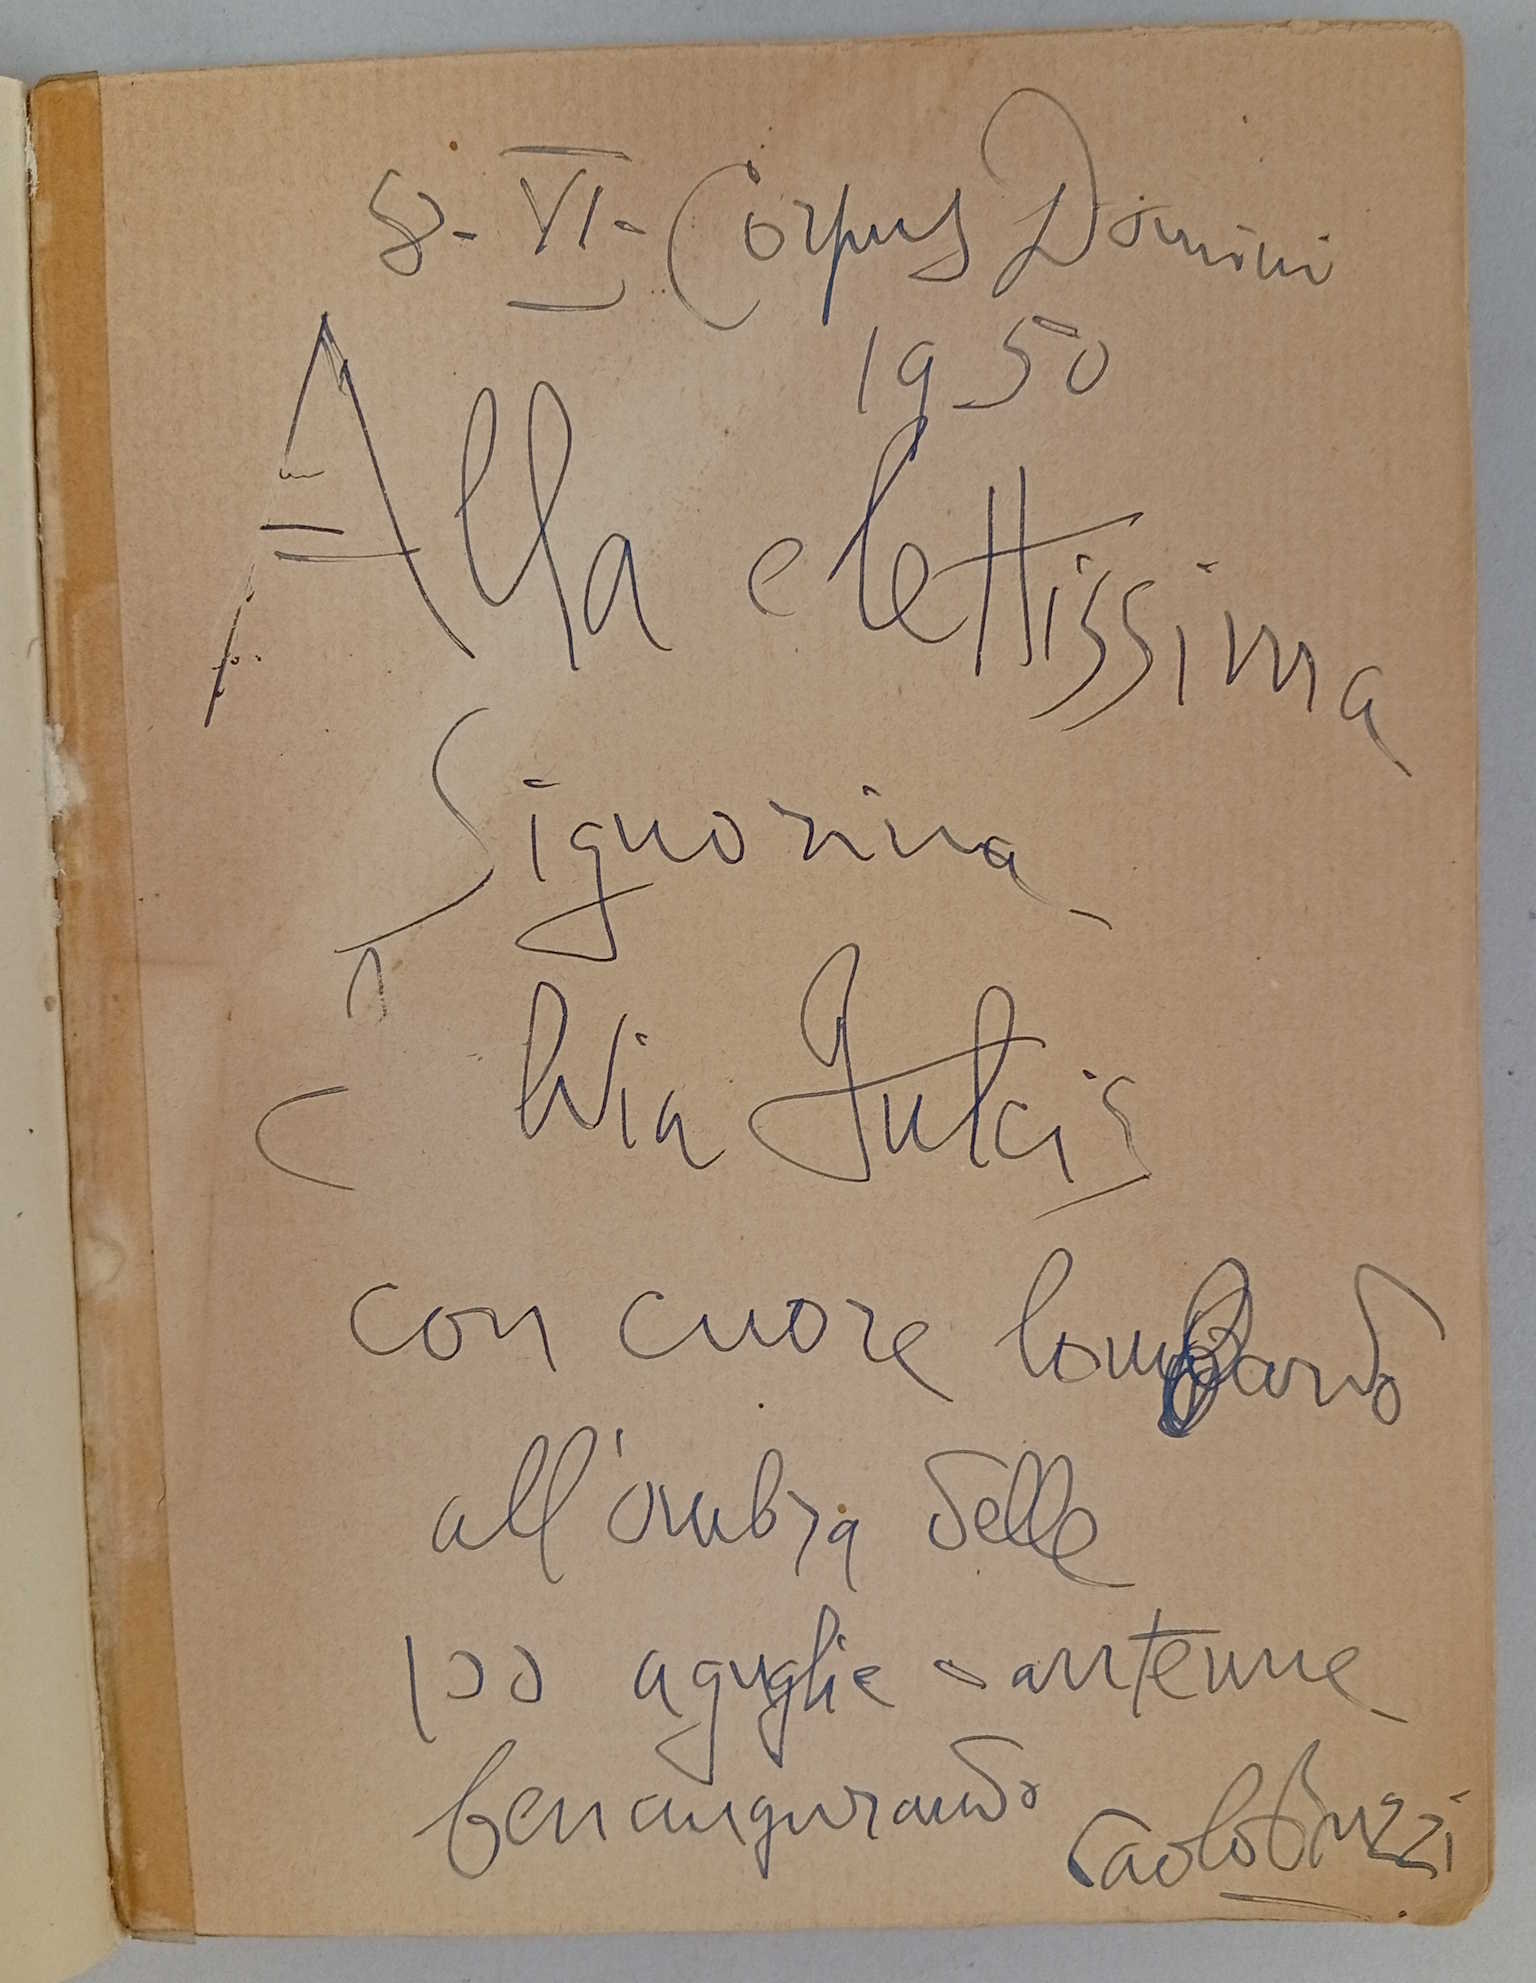 8-VI-Corpus Domini
1950
Alla elettissima
Signorina
con cuore lombardo
all'ombra delle
100 aguglie-antenne
benaugurando Paolo Buzzi